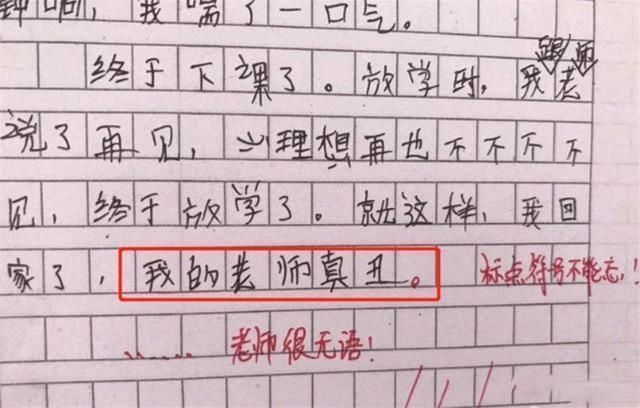 钟啊，我喘了一口气。
终于下课了。放学时，我跟老师
说了再见，心理想再也不不不不
见，终于放学了。就这样，我回
家了，我的老师真丑。 标点符号不能忘！
...... 老师很无语！